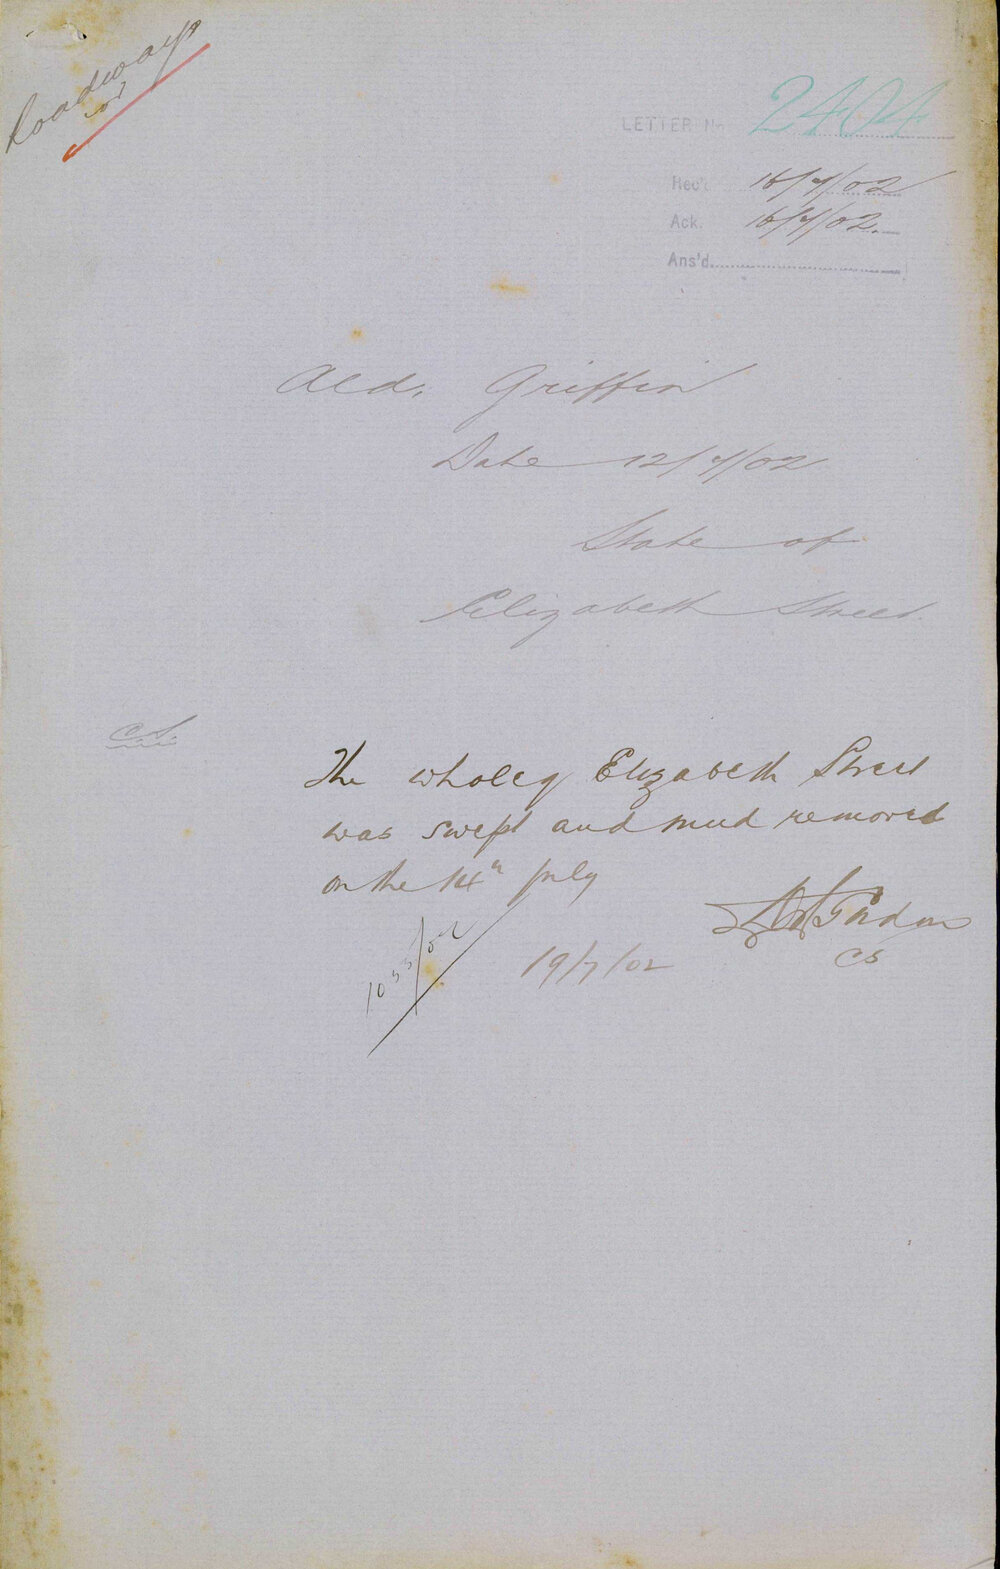 Roadways
LETTER No 2404
Rec'd 16/7/02
Ack. 16/7/02.
Ans'd
Ald. Griffin
Date 12/7/02
State of
Elizabeth Street.
C.S.
The whole of Elizabeth Street
was swept and mud removed
on the 14th July
CS
19/7/02
1033/02